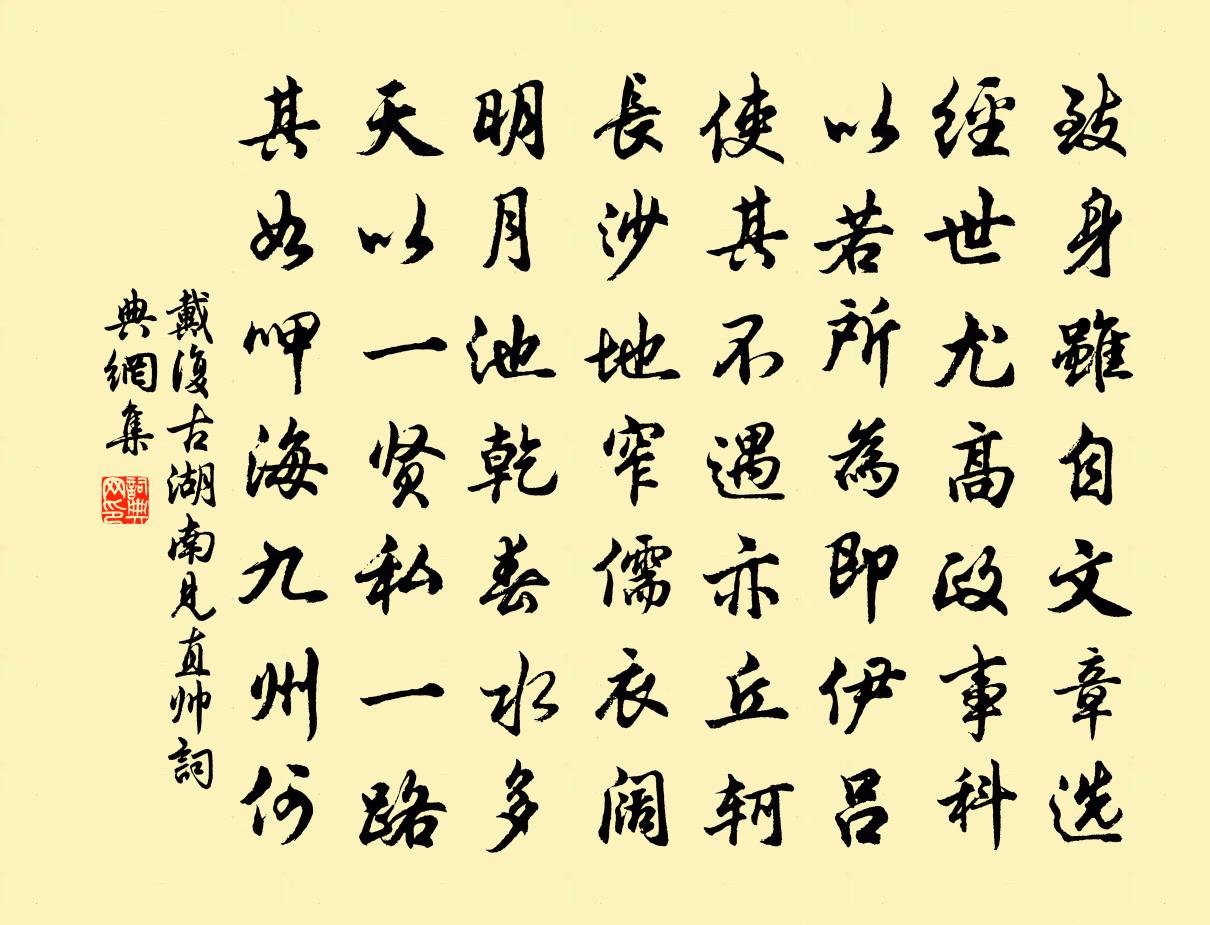 致身雖自文章选
經世尤高政事科
以若所為即伊吕
使其不遇亦丘轲
長沙地窄儒衣阔
明月池乾春水多
天以一贤私一路
其如呷海九州何
戴復古湖南見直帅詞
典網集
詞典
网印